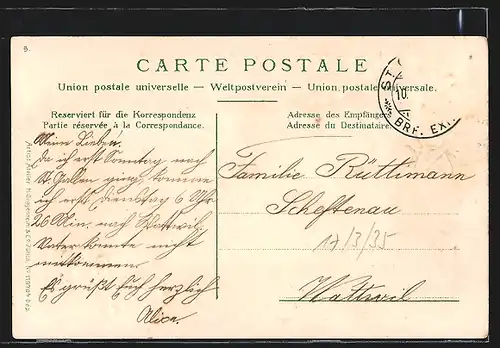 9.
CARTE POSTALE
Union postale universelle — Weltpostverein — Union postale universale.
Reserviert für die Korrespondenz
Partie réservée à la Correspondance.
Adresse des Empfängers
Adresse du Destinataire
ST.
10.
BRF. EXP.
Meine Lieben.
Da ich erst Sonntag nach
St. Gallen ging, komme
ich erst Dienstag 6 Uhr
26 Min. nach Wattwil,
Vater konnte nicht
mitkommen.
Es grüßt Euch herzlich
Alice.
Familie Rüttimann
Scheftenau
17/3/35
Wattwil